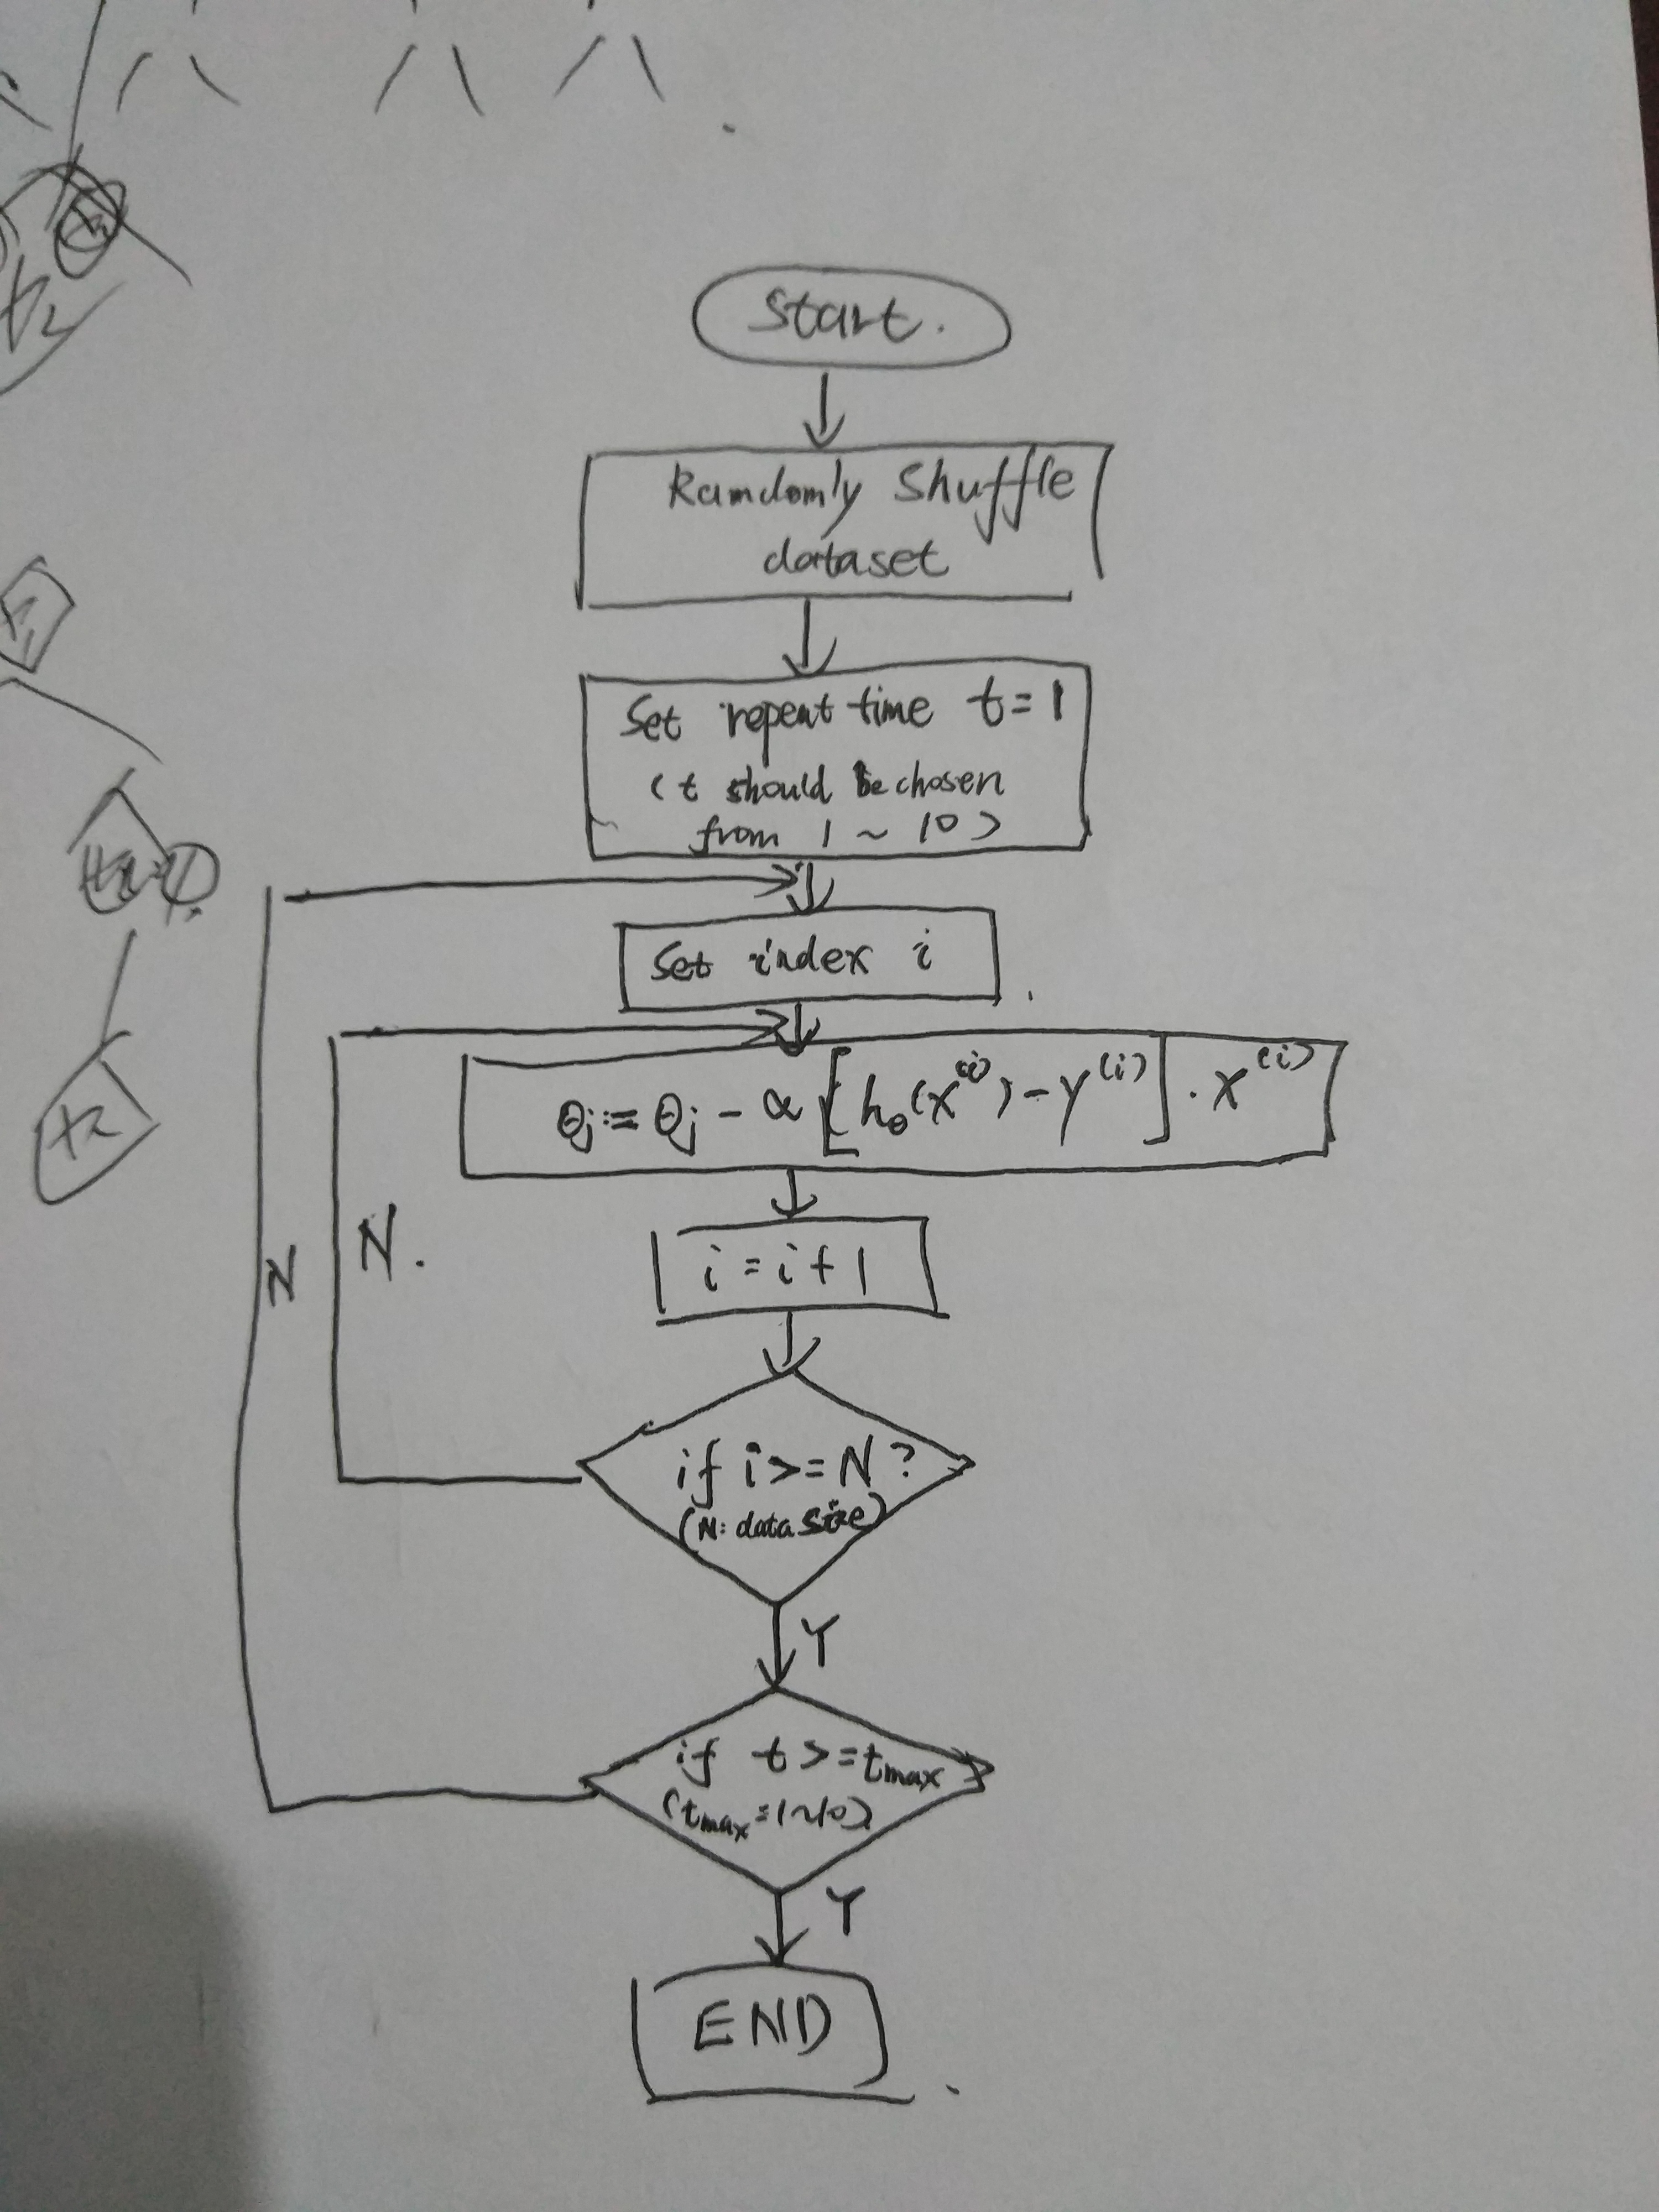 Start.
Randomly Shuffle
dataset
Set repeat time t = 1
(t should be chosen
from 1 ~ 10)
Set index i
θj := θj - α [hθ(x⁽ⁱ⁾) - y⁽ⁱ⁾] · x⁽ⁱ⁾
i = i + 1
N
N.
if i >= N ?
(N: data size)
Y
if t >= tmax
(tmax = 1~10)
Y
END
t2